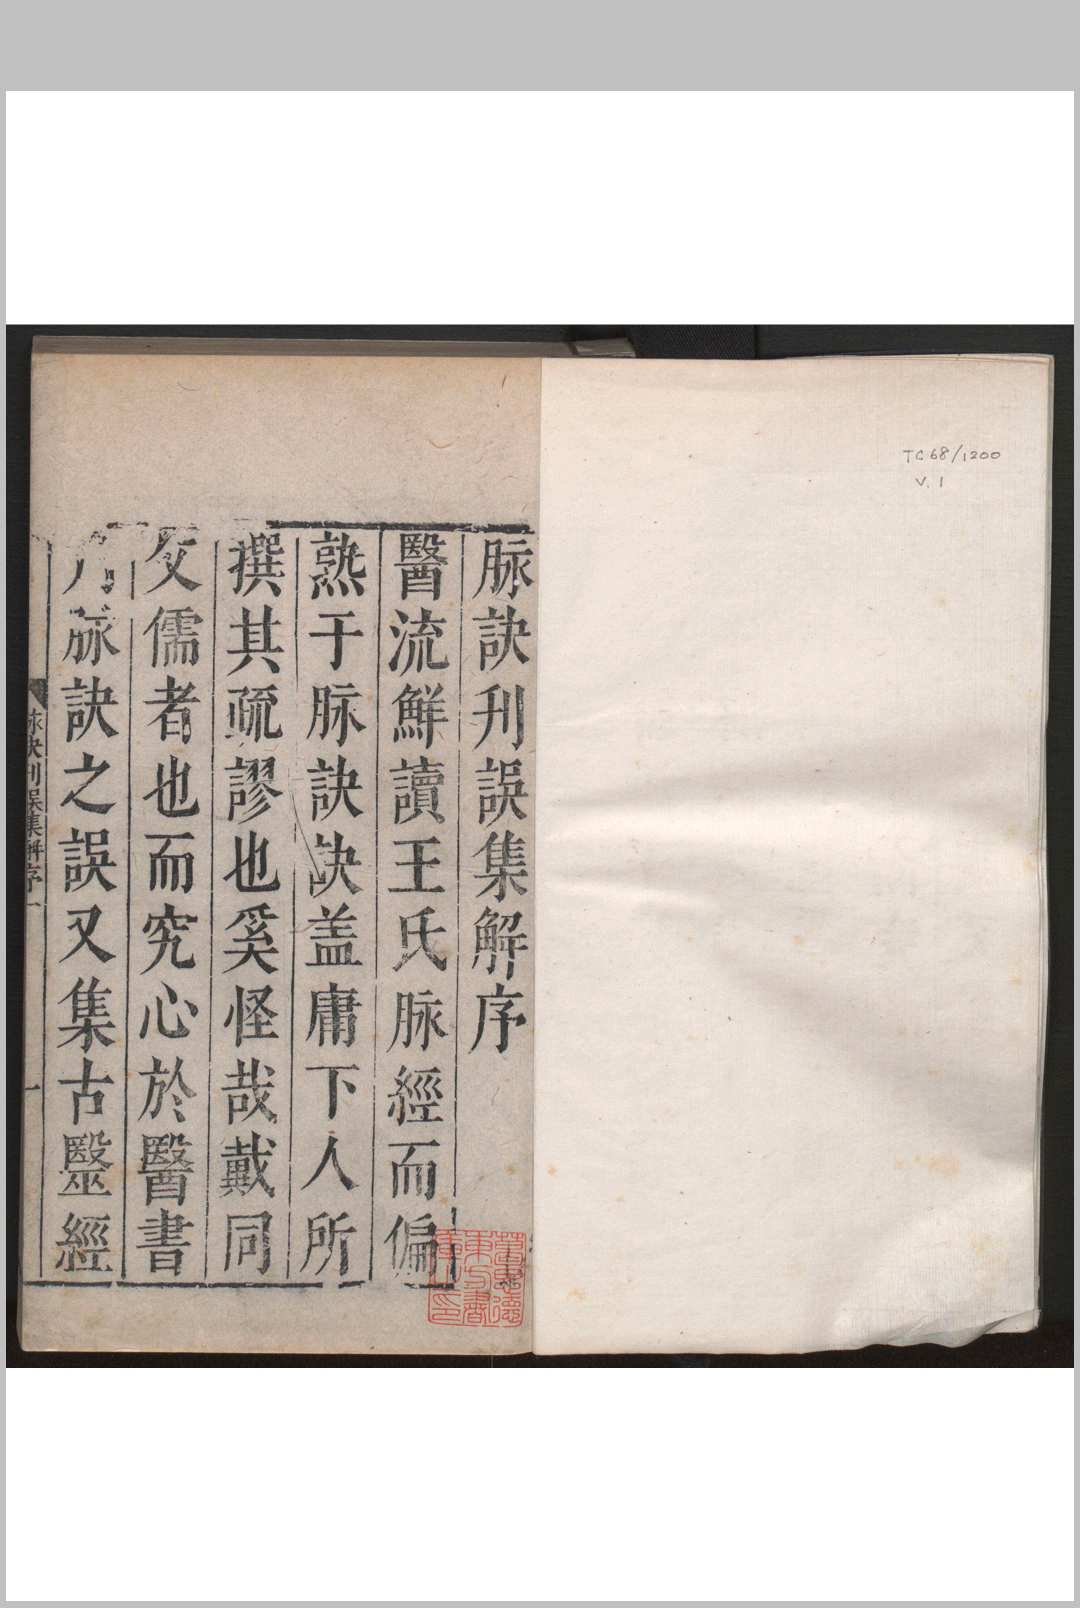 TC68/1200
V.1
脉訣刋誤集解序
醫流鮮讀王氏脉經而偏
熟于脉訣訣盖庸下人所
撰其疏謬也奚怪哉戴同
父儒者也而究心於醫書
脉訣之誤又集古毉經
脉訣刋誤集解序
一